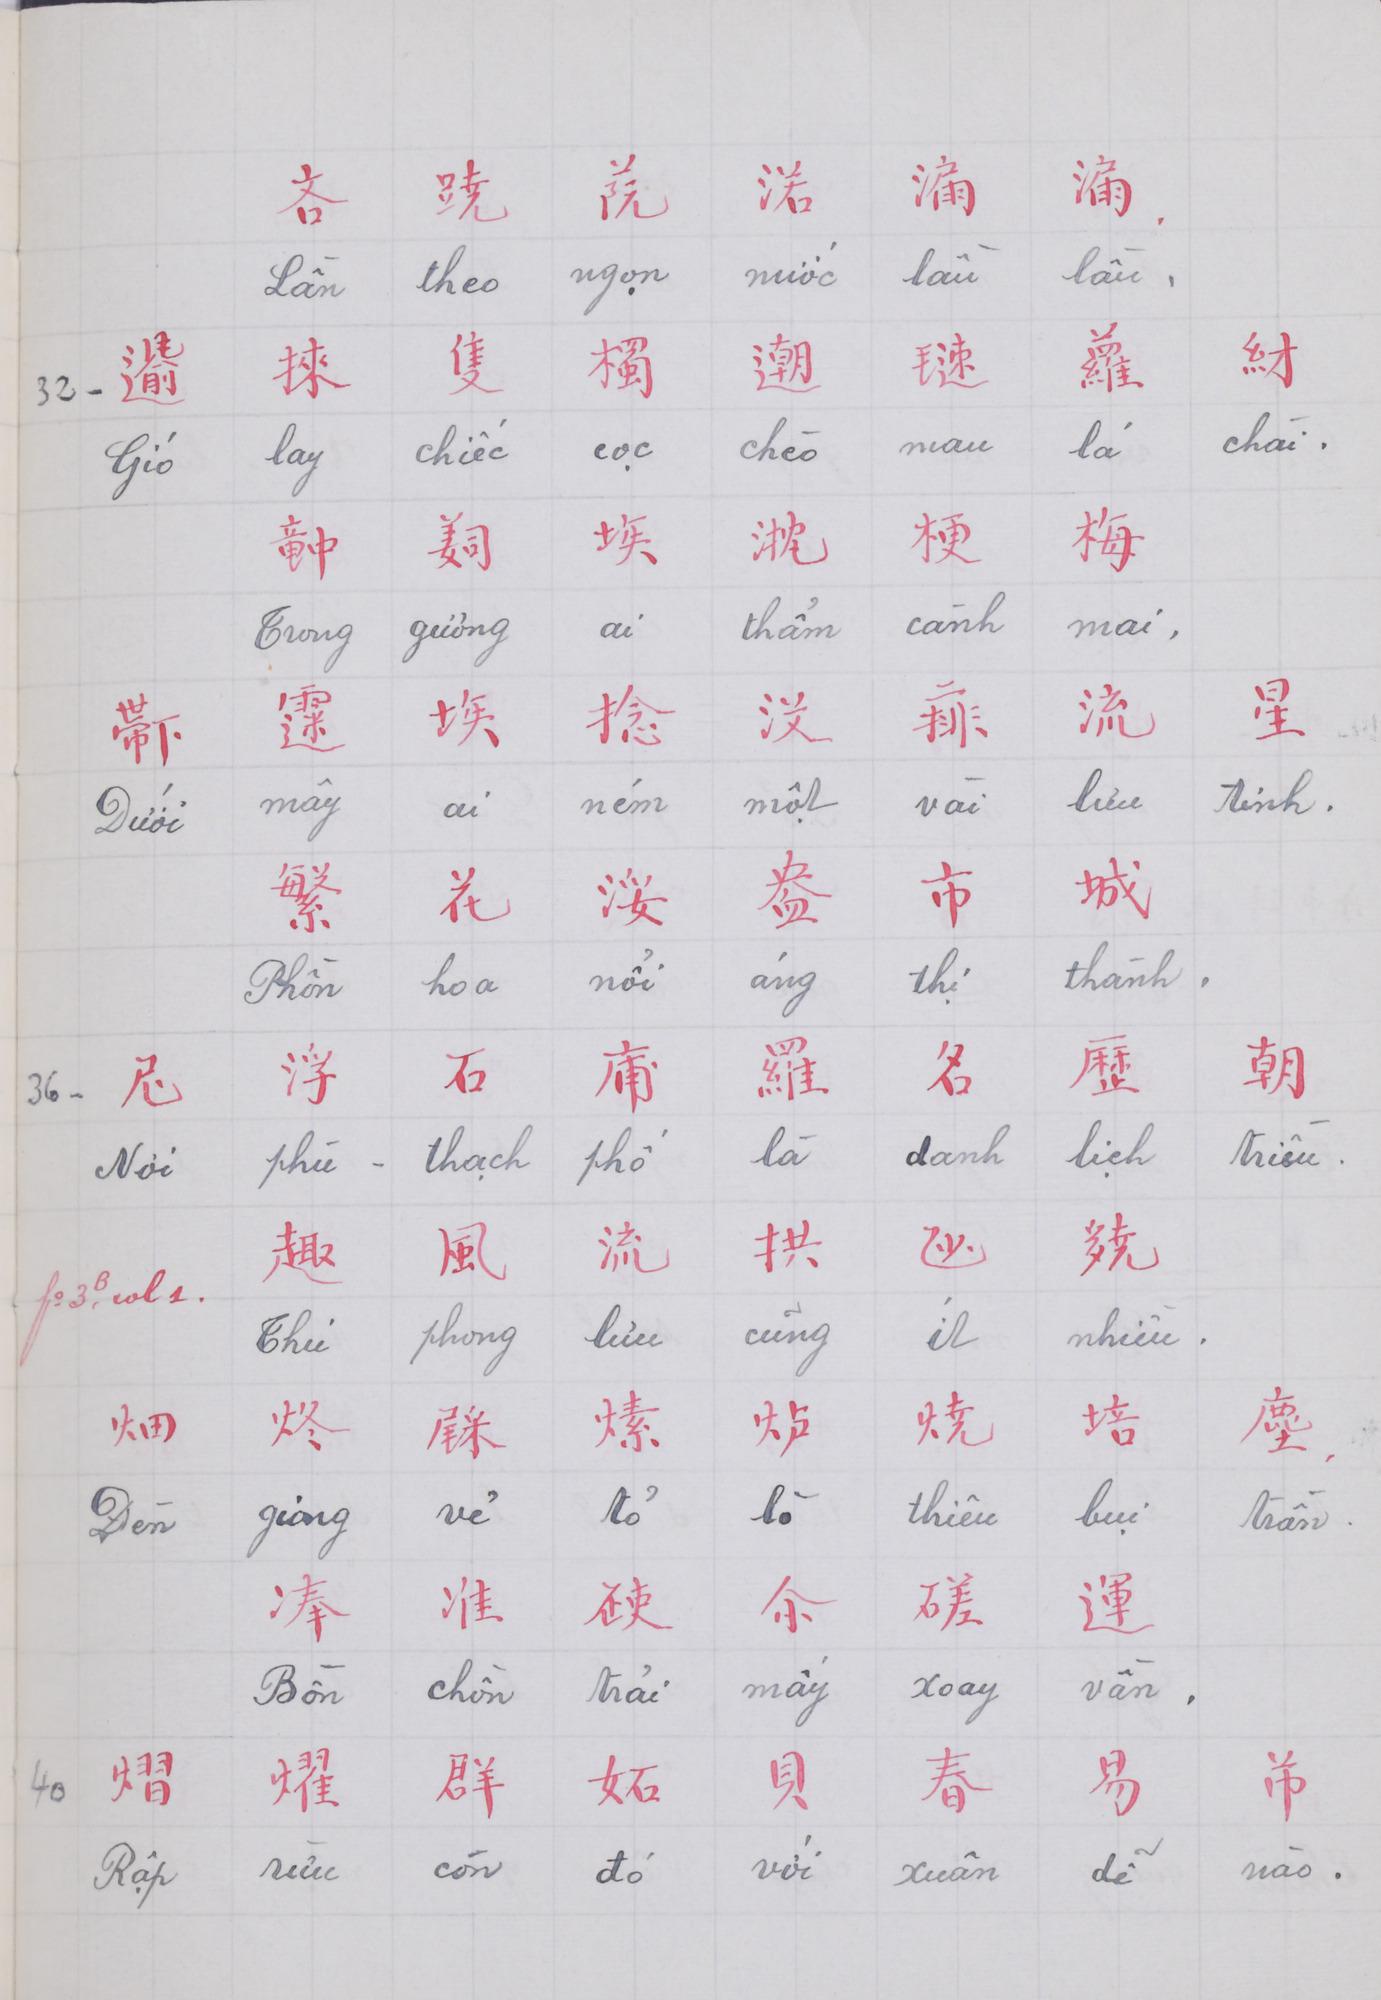 吝 蹺 䓳 渃 漏 漏.
Lần theo ngọn nước lầu lầu,
32- 𨔍 捸 隻 㯮 𨎠 𣭻 蘿 紂
Gió lay chiếc cọc chèo mau lá chài.
𥪝 𦎛 埃 瀋 梗 梅
Trong gương ai thẩm cành mai,
𤲂 𩄲 埃 捻 没 𠄧 流 星
Dưới mây ai ném một vài lưu tinh.
繁 花 浽 盎 市 城
Phồn hoa nổi áng thị thành,
36- 尼 浮 石 庯 羅 名 歷 朝
Nơi phù - thạch phố là danh lịch triều.
趣 風 流 拱 𠃣 𡗉
fo 3B, col 1.
Thú phong lưu cũng ít nhiều.
畑 炵 𨤔 熽 炉 焼 培 塵.
Đèn giong vẻ tỏ lò thiêu bụi trần.
淎 准 𥓅 尒 磋 運
Bồn chồn trải mấy xoay vần,
40 熠 燿 群 妬 貝 春 易 芇
Rập rìu còn đó với xuân dễ nào.